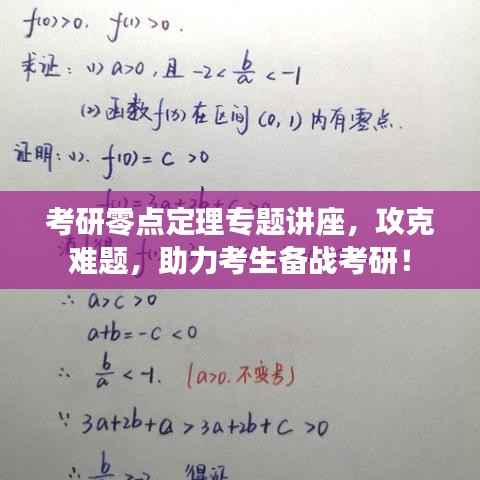 f(0)>0, f(1)>0.
求证: (1) a>0, 且 -2< b/a < -1
(2) 函数 f(x) 在区间 (0, 1) 内有零点.
证明: (1). f(0) = c >0
考研零点定理专题讲座，攻克
难题，助力考生备战考研！
∴ a>c>0
a+b=-c <0
∴ b/a < -1. (a>0. 不变号)
∵ 3a+2b+a > 3a+2b+c >0
∴ b/a >-2 得证